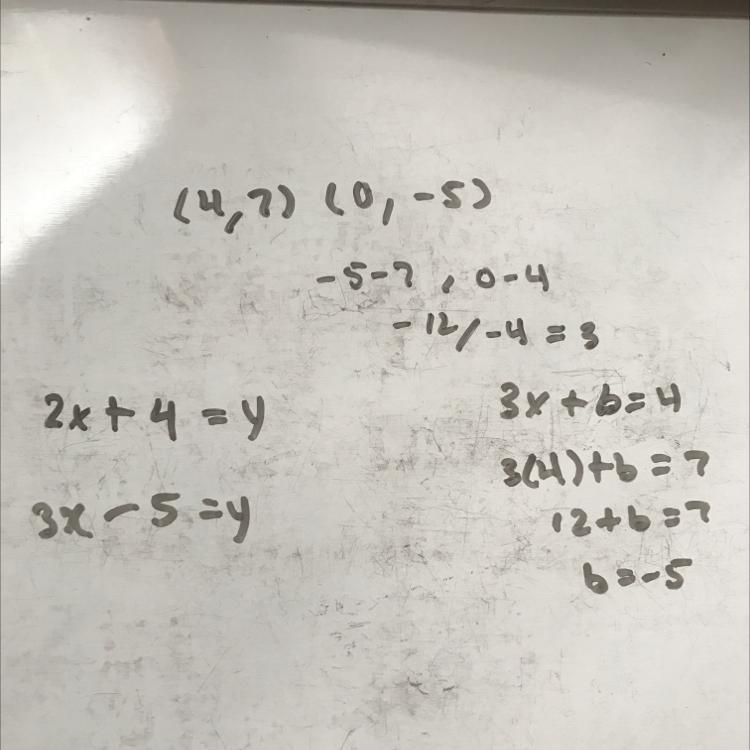 (4,7) (0,-5)
-5-7, 0-4
-12/-4 = 3
2x + 4 = y
3x - 5 = y
3x + b = 4
3(4) + b = 7
12 + b = 7
b = -5